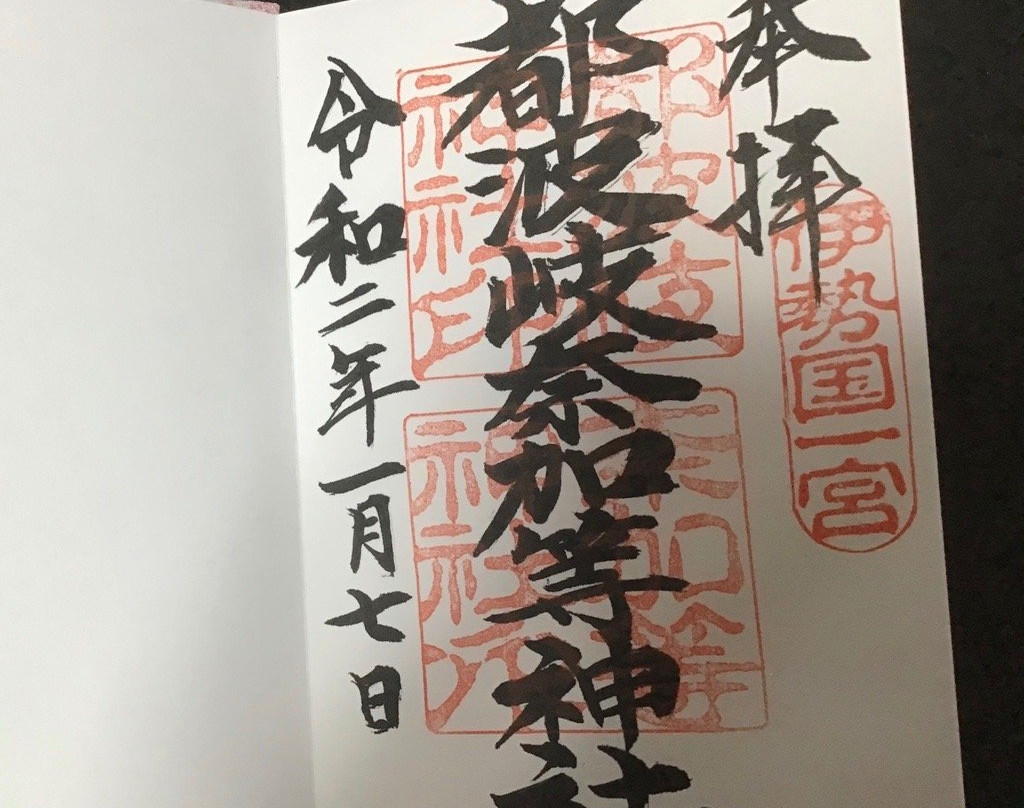 奉拝
伊勢国一宮
都波岐奈加等神社
令和二年一月七日